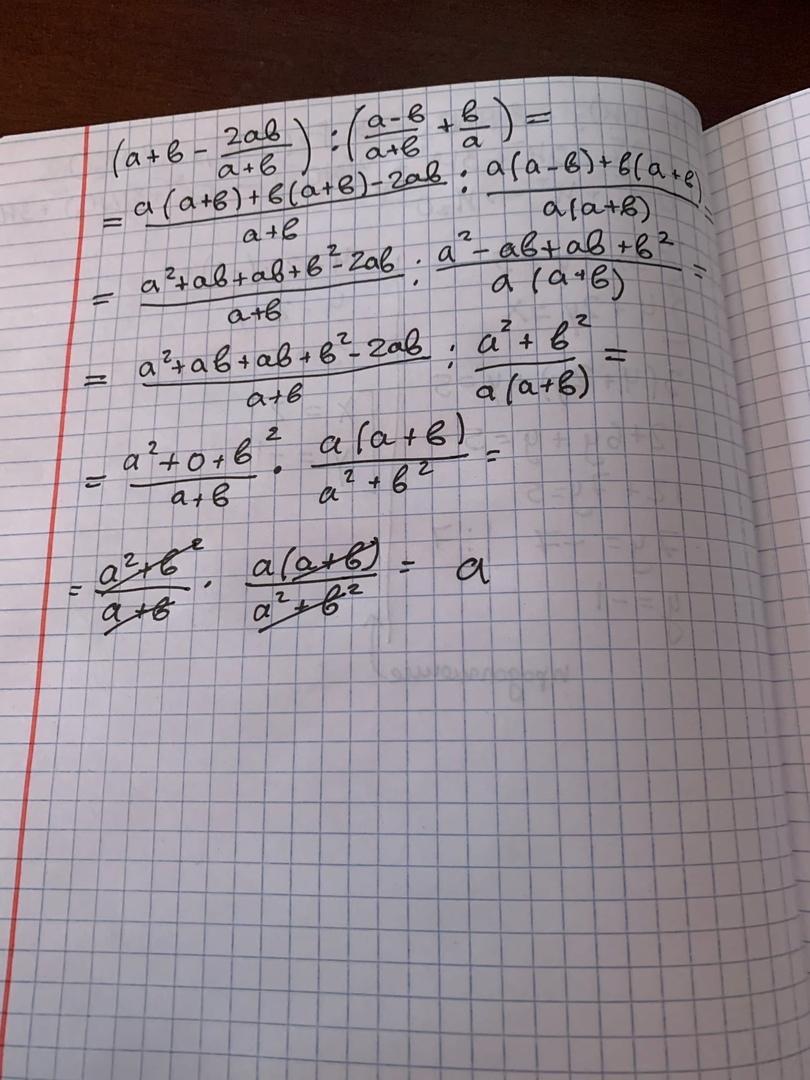 (a+b - 2ab/(a+b)) : ((a-b)/(a+b) + b/a) =
= (a(a+b)+b(a+b)-2ab)/(a+b) : (a(a-b)+b(a+b))/(a(a+b)) =
= (a²+ab+ab+b²-2ab)/(a+b) : (a²-ab+ab+b²)/(a(a+b)) =
= (a²+ab+ab+b²-2ab)/(a+b) : (a²+b²)/(a(a+b)) =
= (a²+0+b²)/(a+b) · (a(a+b))/(a²+b²) =
= (a²+b²)/(a+b) · (a(a+b))/(a²+b²) = a